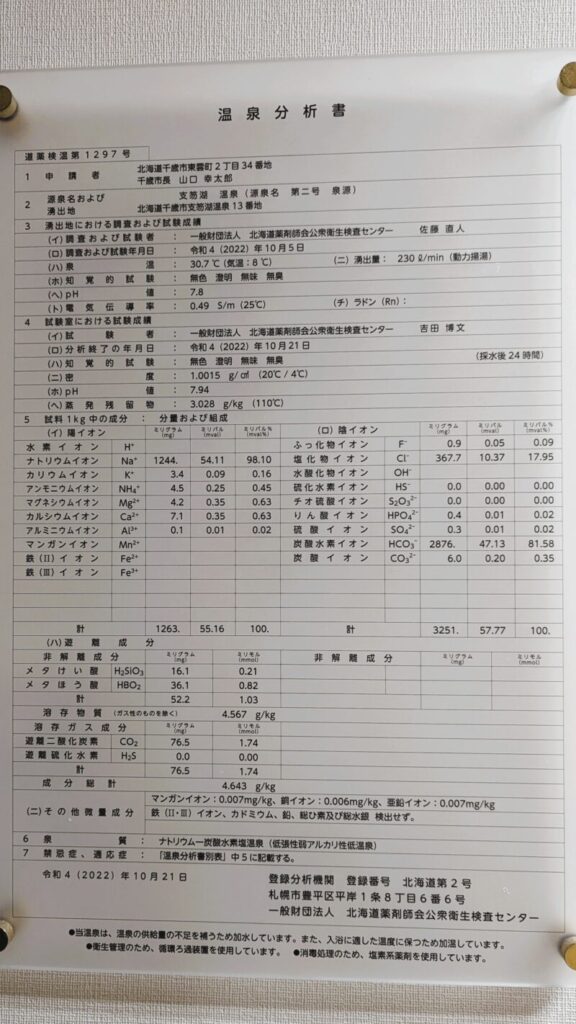 温泉分析書
道薬検温第1297号
1 申請者 北海道千歳市東雲町2丁目34番地
千歳市長 山口 幸太郎
2 源泉名および湧出地 支笏湖 温泉(源泉名 第二号 泉源)
北海道千歳市支笏湖温泉13番地
3 湧出地における調査および試験成績
(イ)調査および試験者 : 一般財団法人 北海道薬剤師会公衆衛生検査センター 佐藤 直人
(ロ)調査および試験年月日 : 令和4(2022)年10月5日
(ハ)泉温 : 30.7℃(気温:8℃) (ニ)湧出量: 230 ℓ/min(動力揚湯)
(ホ)知覚的試験 : 無色 澄明 無味 無臭
(ヘ)pH値 : 7.8
(ト)電気伝導率 : 0.49 S/m(25℃) (チ)ラドン(Rn):
4 試験室における試験成績
(イ)試験者 : 一般財団法人 北海道薬剤師会公衆衛生検査センター 吉田 博文
(ロ)分析終了の年月日 : 令和4(2022)年10月21日
(ハ)知覚的試験 : 無色 澄明 無味 無臭 (採水後24時間)
(ニ)密度 : 1.0015 g/㎤ (20℃/4℃)
(ホ)pH値 : 7.94
(ヘ)蒸発残留物 : 3.028 g/kg (110℃)
5 試料1kg中の成分 : 分量および組成
(イ)陽イオン ミリグラム(mg) ミリバル(mval) ミリバル%(mval%) (ロ)陰イオン ミリグラム(mg) ミリバル(mval) ミリバル%(mval%)
水素イオン H⁺ ふっ化物イオン F⁻ 0.9 0.05 0.09
ナトリウムイオン Na⁺ 1244. 54.11 98.10 塩化物イオン Cl⁻ 367.7 10.37 17.95
カリウムイオン K⁺ 3.4 0.09 0.16 水酸化物イオン OH⁻
アンモニウムイオン NH₄⁺ 4.5 0.25 0.45 硫化水素イオン HS⁻ 0.0 0.00 0.00
マグネシウムイオン Mg²⁺ 4.2 0.35 0.63 チオ硫酸イオン S₂O₃²⁻ 0.0 0.00 0.00
カルシウムイオン Ca²⁺ 7.1 0.35 0.63 りん酸イオン HPO₄²⁻ 0.4 0.01 0.02
アルミニウムイオン Al³⁺ 0.1 0.01 0.02 硫酸イオン SO₄²⁻ 0.3 0.01 0.02
マンガンイオン Mn²⁺ 炭酸水素イオン HCO₃⁻ 2876. 47.13 81.58
鉄(Ⅱ)イオン Fe²⁺ 炭酸イオン CO₃²⁻ 6.0 0.20 0.35
鉄(Ⅲ)イオン Fe³⁺
計 1263. 55.16 100. 計 3251. 57.77 100.
(ハ)遊離成分
非解離成分 ミリグラム(mg) ミリモル(mmol) 非解離成分 ミリグラム(mg) ミリモル(mmol)
メタけい酸 H₂SiO₃ 16.1 0.21
メタほう酸 HBO₂ 36.1 0.82
計 52.2 1.03
溶存物質 (ガス性のものを除く) 4.567 g/kg
溶存ガス成分 ミリグラム(mg) ミリモル(mmol)
遊離二酸化炭素 CO₂ 76.5 1.74
遊離硫化水素 H₂S 0.0 0.00
計 76.5 1.74
成分総計 4.643 g/kg
(ニ)その他微量成分 マンガンイオン:0.007mg/kg、銅イオン:0.006mg/kg、亜鉛イオン:0.007mg/kg
鉄(Ⅱ・Ⅲ)イオン、カドミウム、鉛、総ひ素及び総水銀 検出せず。
6 泉質 : ナトリウムー炭酸水素塩温泉(低張性弱アルカリ性低温泉)
7 禁忌症、適応症 : 「温泉分析書別表」中5に記載する。
令和4(2022)年10月21日 登録分析機関 登録番号 北海道第2号
札幌市豊平区平岸1条8丁目6番6号
一般財団法人 北海道薬剤師会公衆衛生検査センター
●当温泉は、温泉の供給量の不足を補うため加水しています。また、入浴に適した温度に保つため加温しています。
●衛生管理のため、循環ろ過装置を使用しています。 ●消毒処理のため、塩素系薬剤を使用しています。